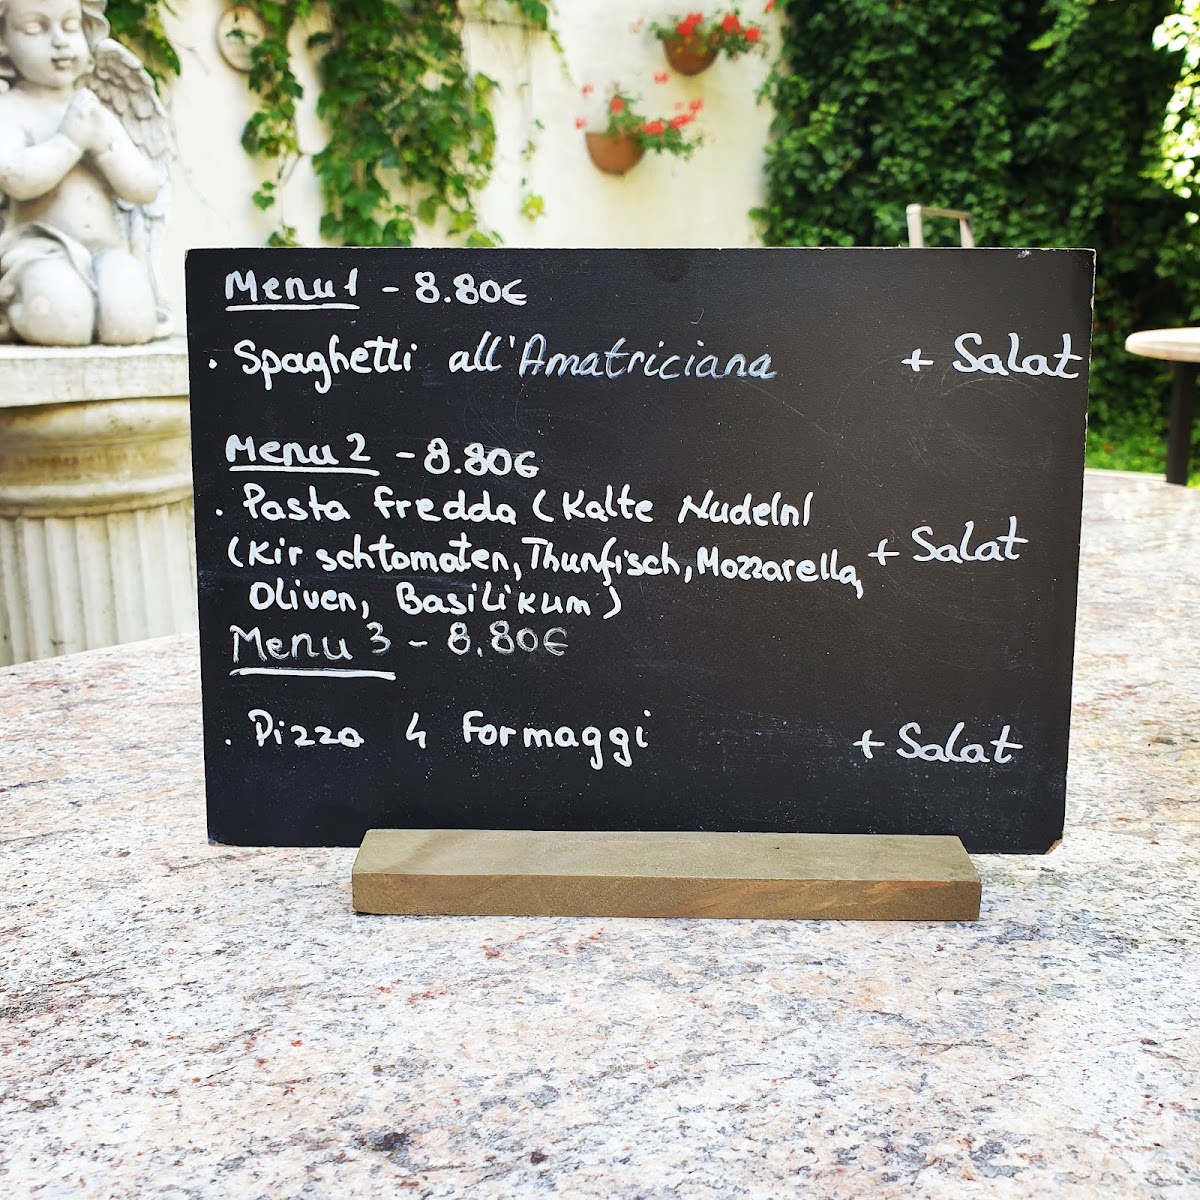 Menu 1 - 8.80€
. Spaghetti all'Amatriciana + Salat
Menu 2 - 8.80€
. Pasta fredda (Kalte Nudeln)
(Kirschtomaten, Thunfisch, Mozzarella, + Salat
Oliven, Basilikum)
Menu 3 - 8.80€
. Pizza 4 Formaggi + Salat